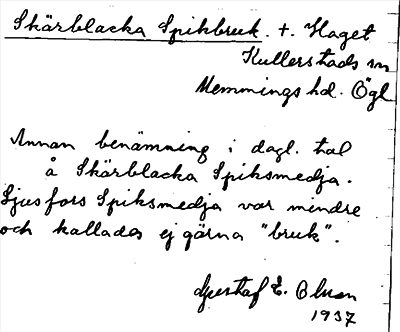 Skärblacka Spikbruk. t. Haget
Kullerstads sn
Memmings hd. Ögl
Annan benämning i dagl. tal
å Skärblacka Spiksmedja.
Ljusfors Spiksmedja var mindre
och kallades ej gärna "bruk".
Gustaf E. Olsson
1937